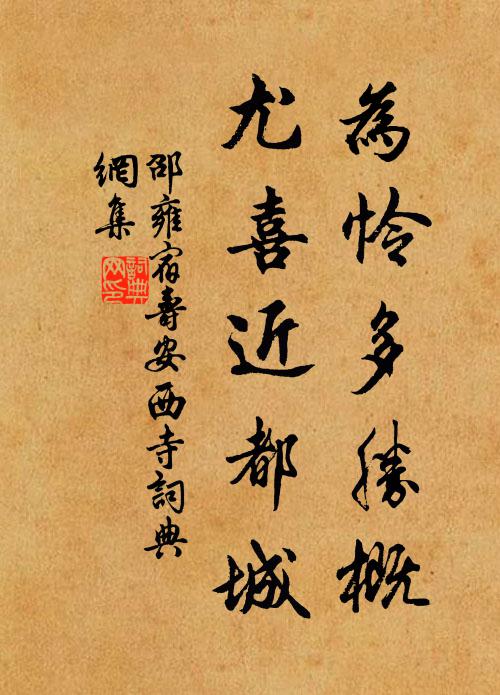 為怜多勝概
尤喜近都城
邵雍宿壽安西寺詞典
網集
詞典網印